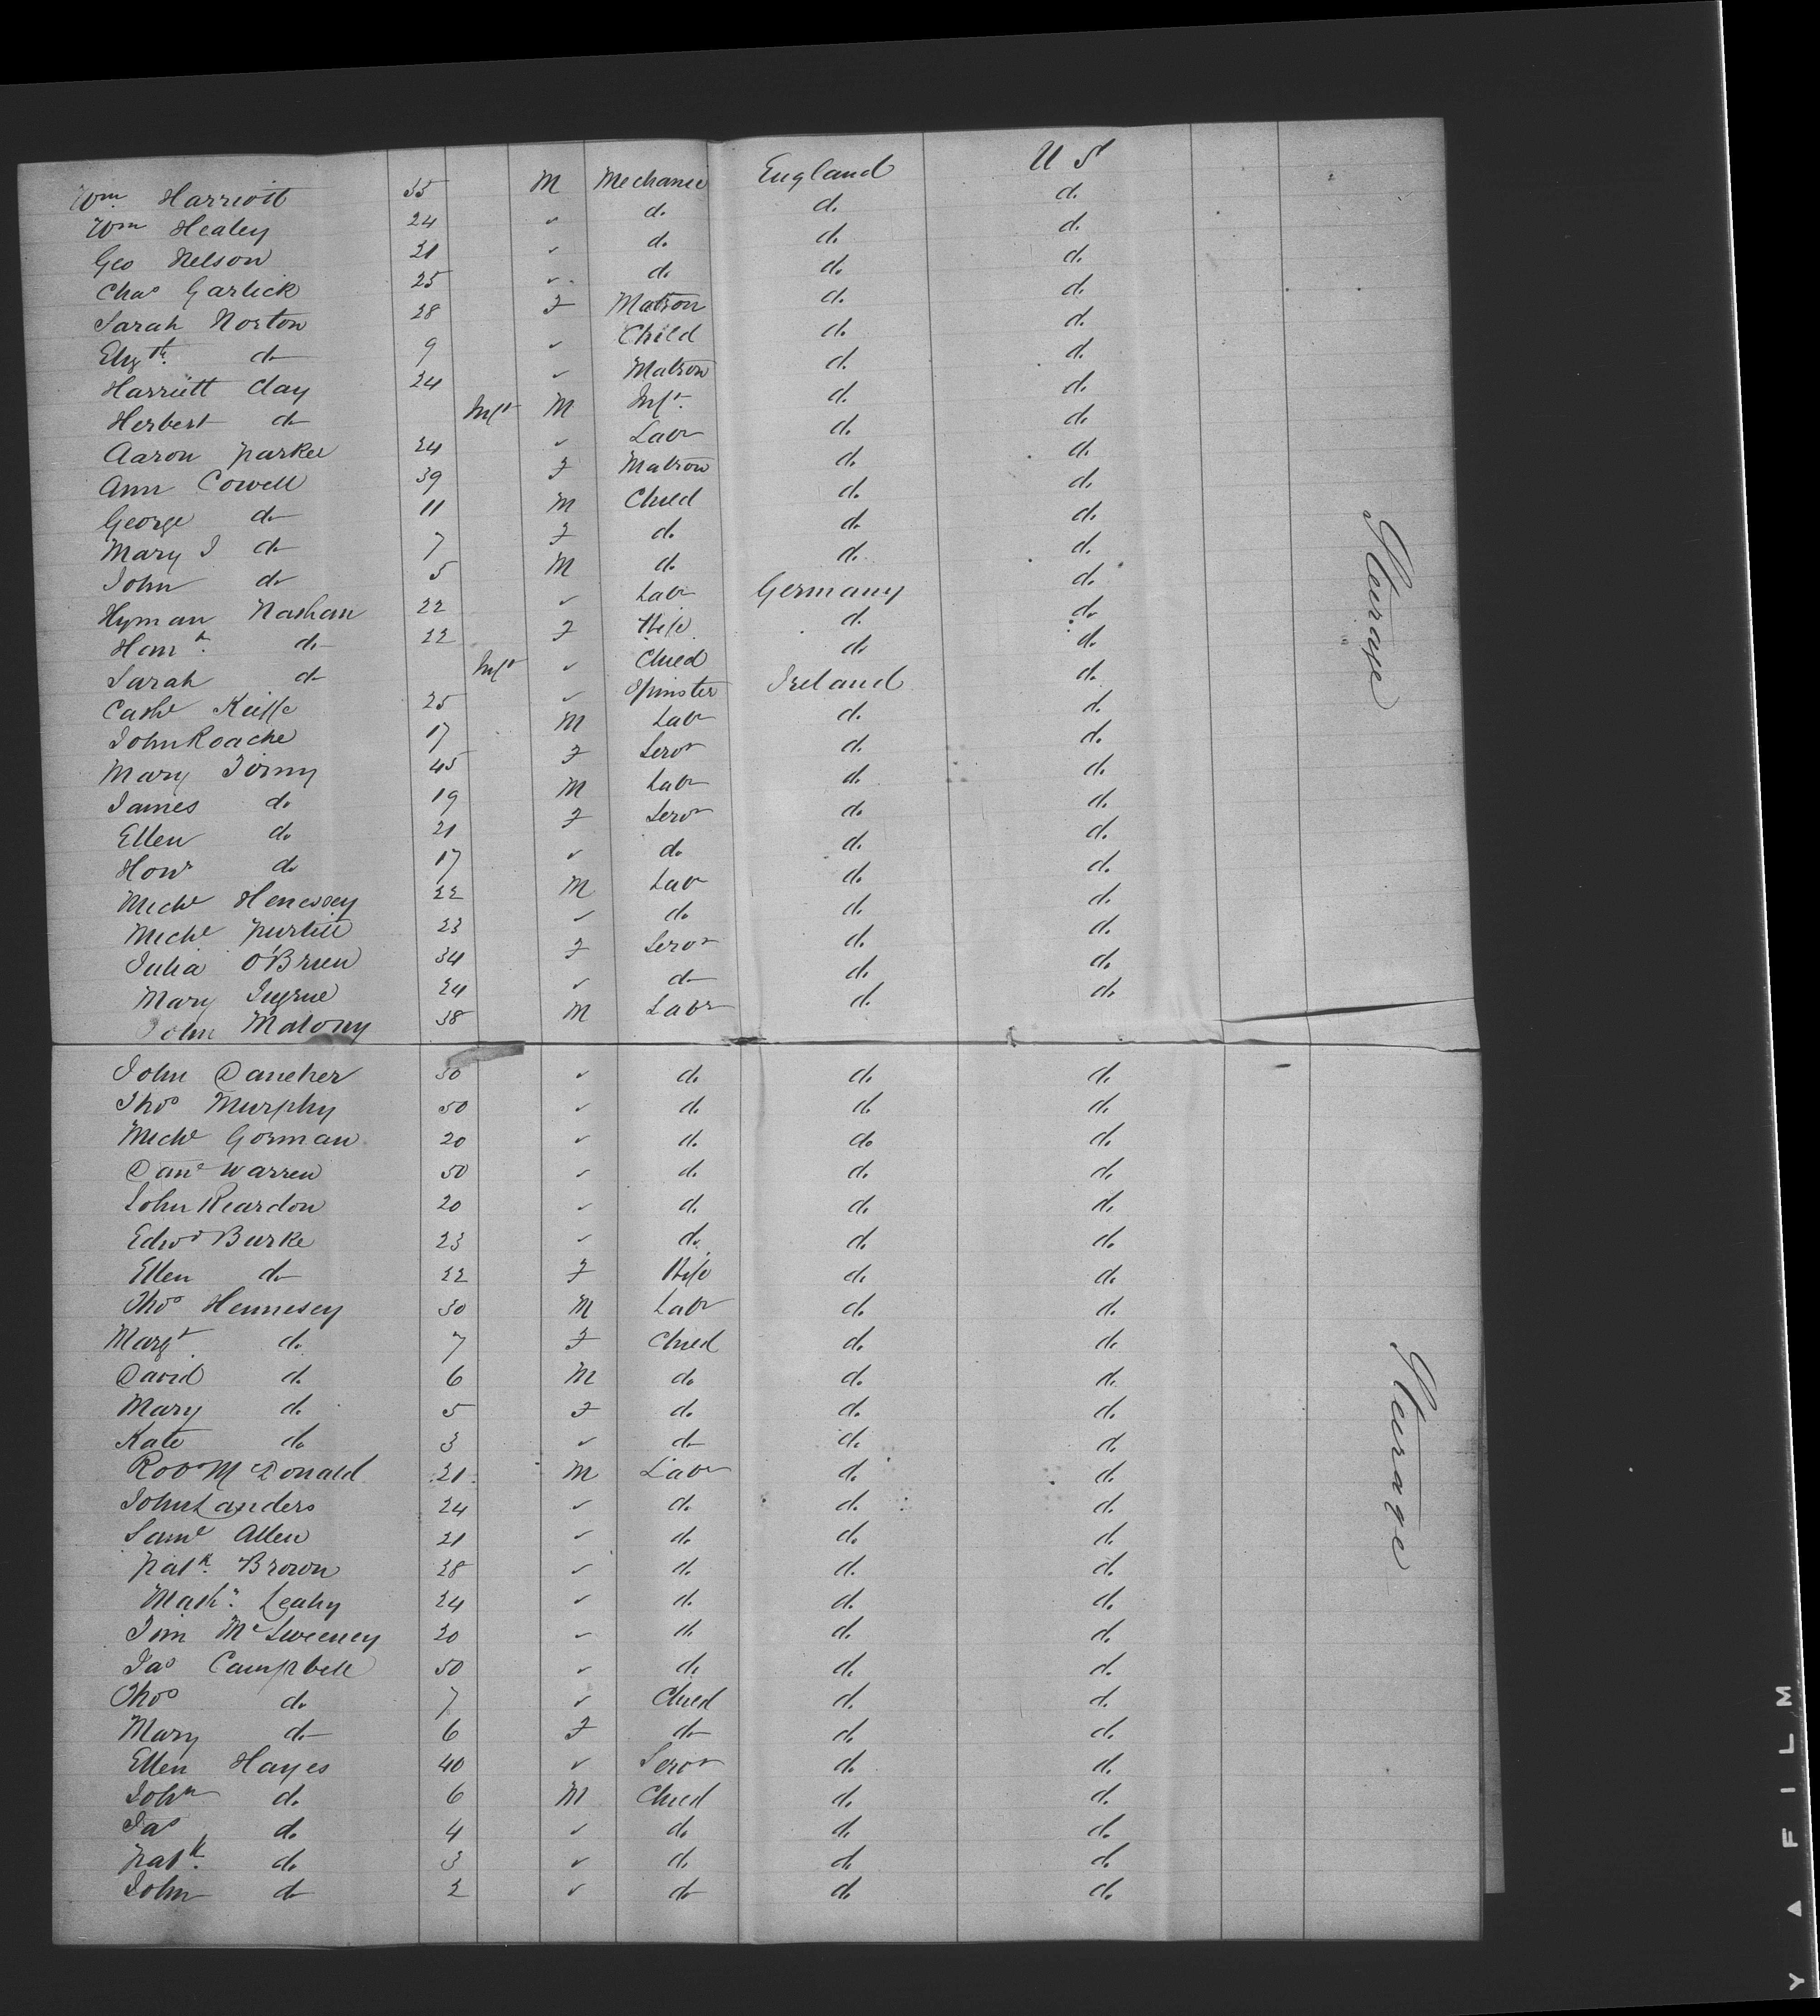 Wm Harriott 35 M Mechanic England U S
Wm Healey 24 " do do do
Geo Nelson 21 " do do do
Chas Garlick 25 " do do do
Sarah Norton 38 F Matron do do
Elizth do 9 " Child do do
Harriett Clay 24 " Matron do do
Herbert do Inft M Inft do do
Aaron Parker 24 " Labr do do
Ann Cowell 39 F Matron do do
George do 11 M Child do do
Mary J do 7 F do do do
John do 5 M do do do
Hyman Nathan 22 " Labr Germany do
Hanh do 22 F Wife do do
Sarah do Inft " Child do do
Cathe Keiffe 25 " Spinster Ireland do
John Roache 17 M Labr do do
Mary 45 F Servt do do
James do 19 M Labr do do
Ellen do 21 F Servt do do
do 17 " do do do
Michl Henessey 22 M Labr do do
Michl Purtill 23 " do do do
Julia O'Brien 34 F Servt do do
Mary 24 " do do do
John Malony 38 M Labr do do
John Daneher 30 " do do do
Thos Murphy 50 " do do do
Michl Gorman 20 " do do do
Danl Warren 50 " do do do
John Reardon 20 " do do do
Edwd Burke 23 " do do do
Ellen do 22 F Wife do do
Thos Hennesey 30 M Labr do do
Margt do 7 F Child do do
David do 6 M do do do
Mary do 5 F do do do
Kate do 3 " do do do
Robt McDonald 21 M Labr do do
John Landers 24 " do do do
Saml Allen 21 " do do do
Patk Brown 28 " do do do
Leahy 24 " do do do
Tim McSweeney 20 " do do do
Jas Campbell 50 " do do do
Thos do 7 " Child do do
Mary do 6 F do do do
Ellen Hayes 40 " Servt do do
John do 6 M Child do do
Jas do 4 " do do do
Patk do 3 " do do do
John do 2 " do do do
Steerage
Steerage
Y ▲ F I L M